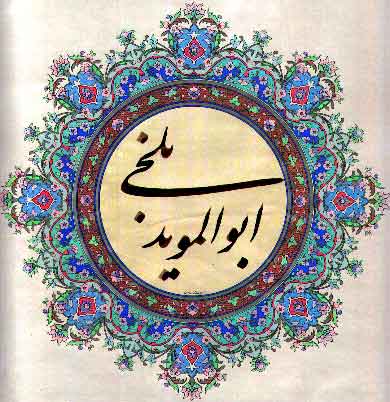 ابوالموید
بلخی